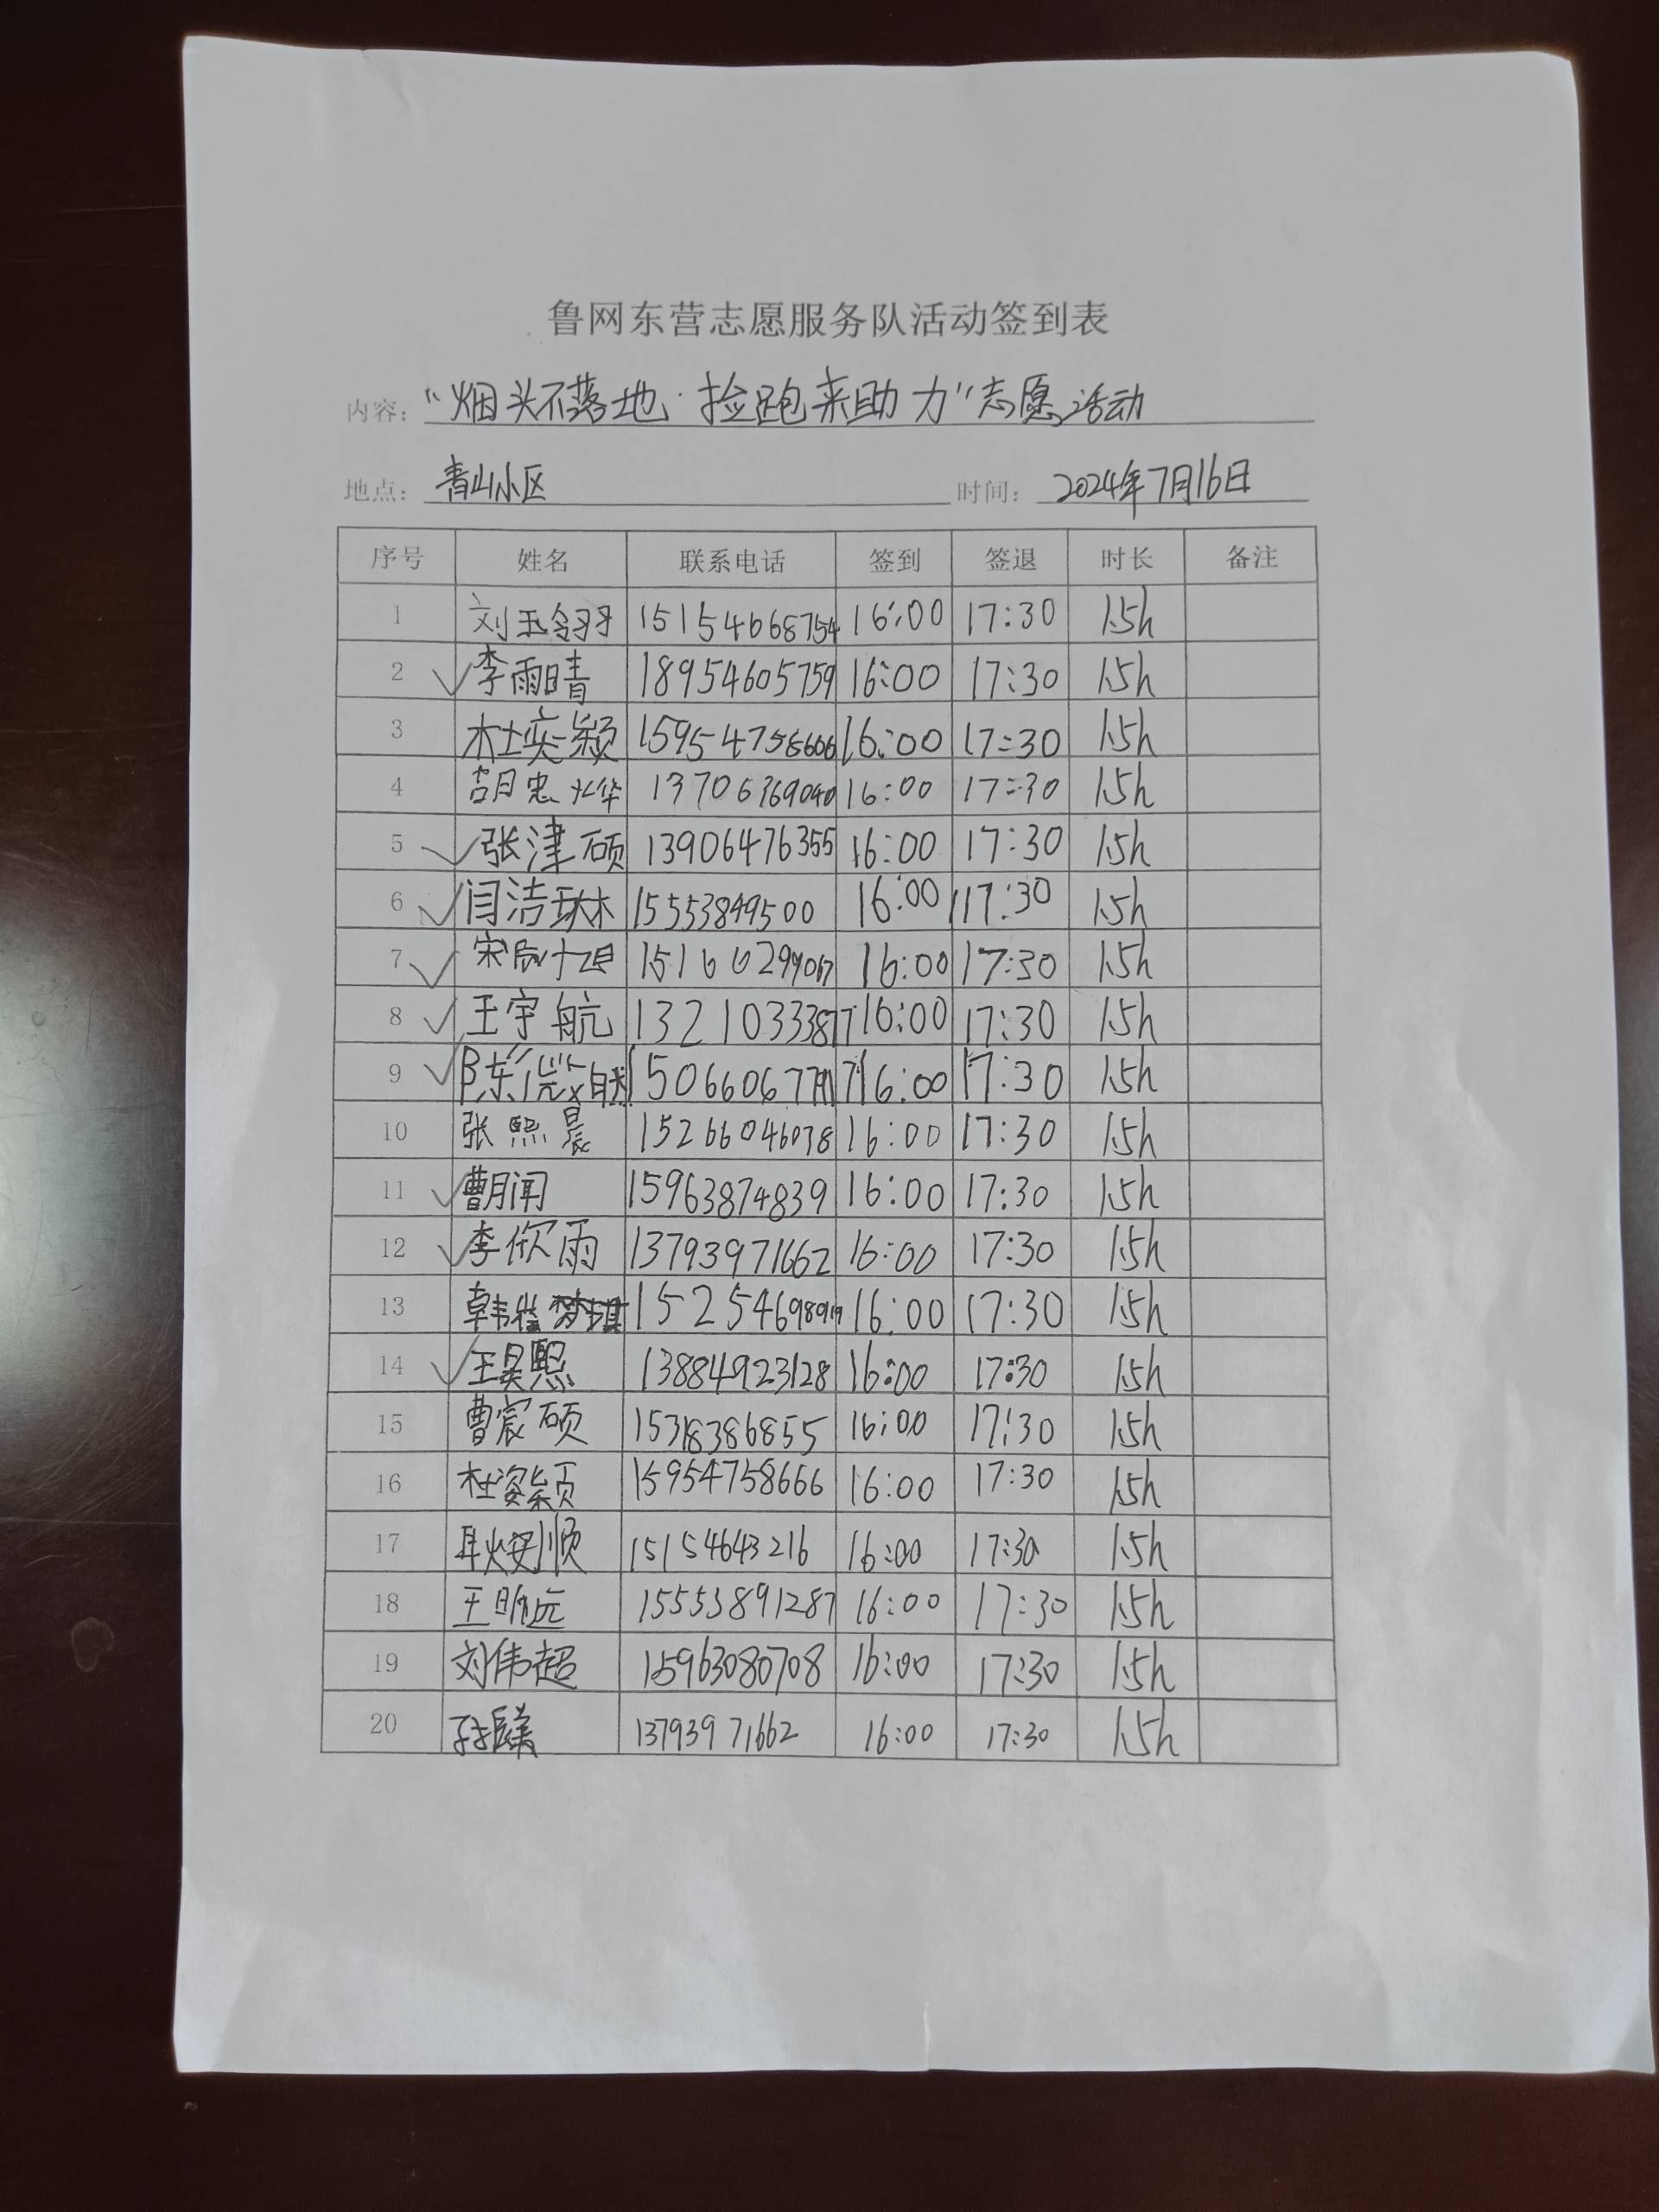 鲁网东营志愿服务队活动签到表
内容：“烟头不落地·捡跑来助力”志愿活动
地点：青山小区 时间：2024年7月16日
序号 姓名 联系电话 签到 签退 时长 备注
1 刘玉翎 15154668754 16:00 17:30 1.5h
2 李雨晴 18954605759 16:00 17:30 1.5h
3 杜奕颖 16:00 17:30 1.5h
4 胡忠烨 13706369040 16:00 17:30 1.5h
5 张津硕 13906476355 16:00 17:30 1.5h
6 闫洁琳 15553849500 16:00 17:30 1.5h
7 16:00 17:30 1.5h
8 王宇航 13210333877 16:00 17:30 1.5h
9 16:00 17:30 1.5h
10 张熙晨 15266046078 16:00 17:30 1.5h
11 曹月闻 15963874839 16:00 17:30 1.5h
12 李欣雨 13793971662 16:00 17:30 1.5h
13 韩 16:00 17:30 1.5h
14 王昊熙 13884923128 16:00 17:30 1.5h
15 曹宸硕 15318386855 16:00 17:30 1.5h
16 杜姿颖 15954758666 16:00 17:30 1.5h
17 15154643216 16:00 17:30 1.5h
18 王昕远 15553891287 16:00 17:30 1.5h
19 刘伟超 15963080708 16:00 17:30 1.5h
20 13793971662 16:00 17:30 1.5h